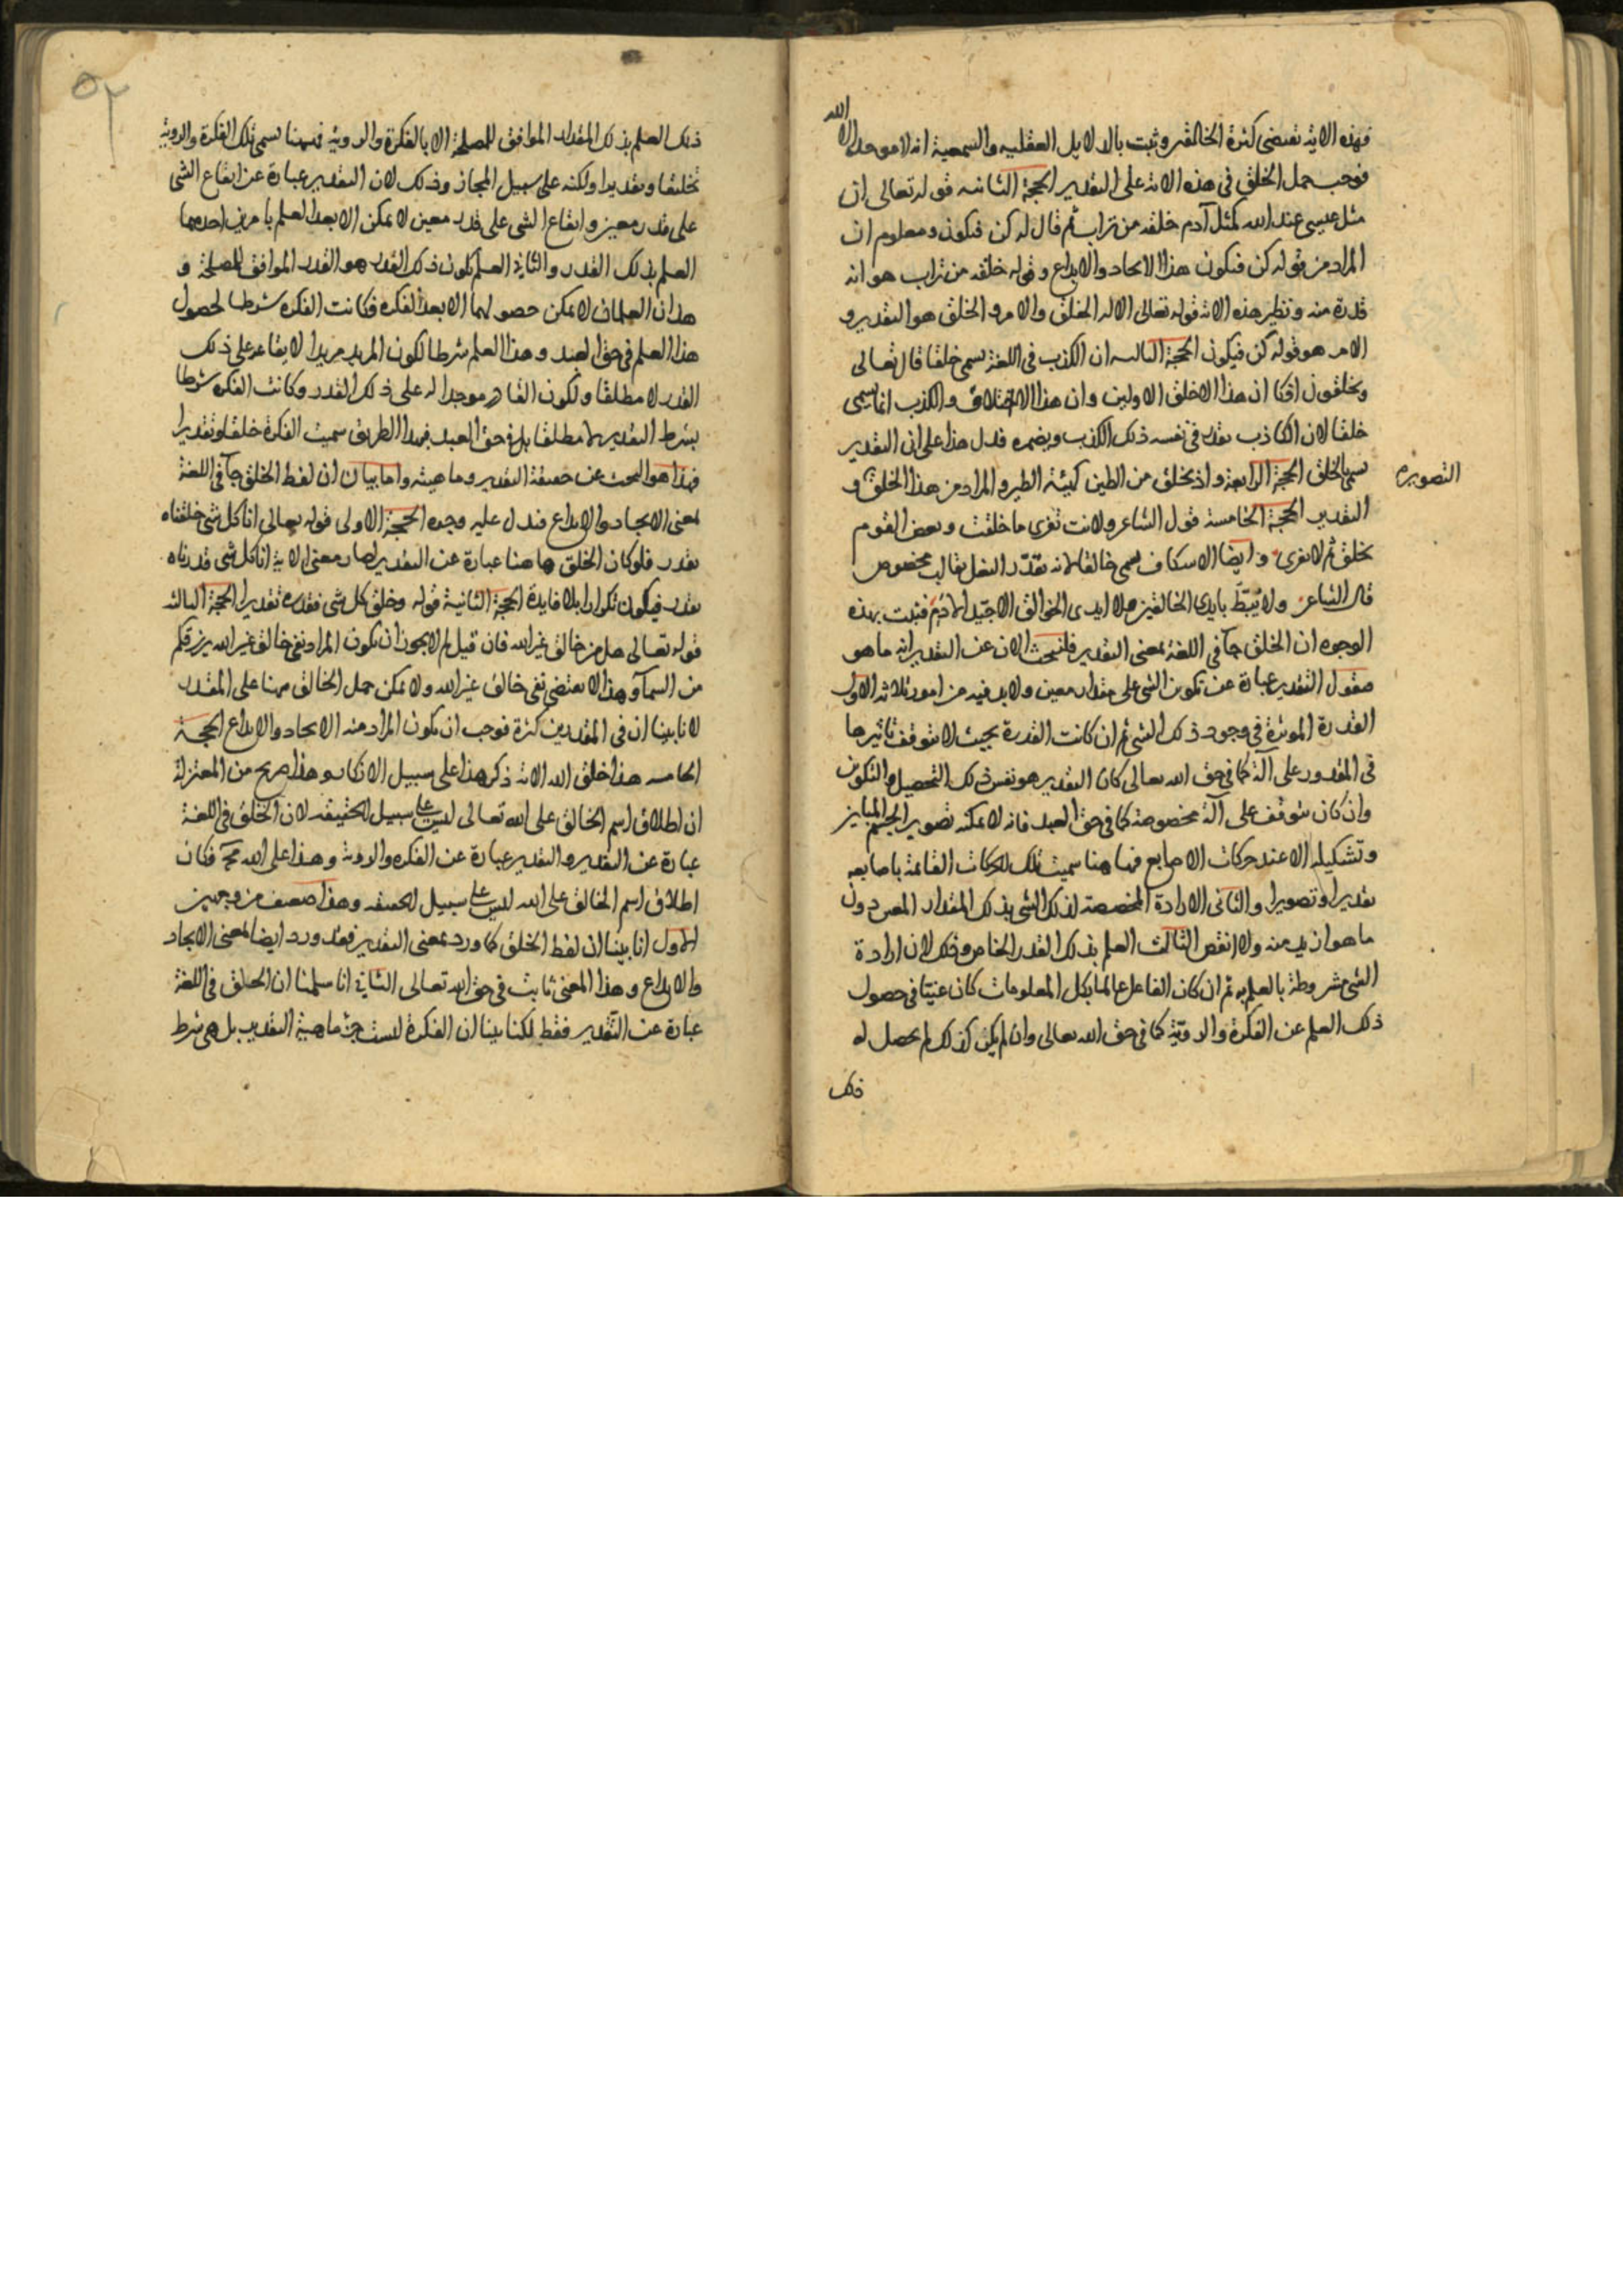 فهذه الاية تقتضى كثرة الخالقين وثبت بالدلايل العقليه والسمعية انه لا موجد الا الله
فوجب حمل الخلق فى هذه الاية على التقدير الحجة الثانيه قوله تعالى ان
مثل عيسى عند الله كمثل آدم خلقه من تراب ثم قال له كن فيكون ومعلوم ان
المراد من قوله كن فيكون هذا الايجاد والابداع وقوله خلقه من تراب هو انه
قدره منه ونظير هذه الاية قوله تعالى الا له الخلق والامر والخلق هو التقدير و
الامر هو قوله كن فيكون الحجة الثالثه ان الكذب فى اللغة يسمى خلقا قال تعالى
وتخلقون افكا ان هذا الا خلق الاولين وان هذا الا اختلاق والكذب انما يسمى
خلقا لان الكاذب يقدر فى نفسه ذلك الكذب ويضمره فدل هذا على ان التقدير
يسمى بالخلق الحجة الرابعة واذ تخلق من الطين كهيئة الطير والمراد من هذا الخلق و
التصوير
التقدير الحجة الخامسة قول الشاعر ولانت تفرى ما خلقت وبعض القوم
يخلق ثم لا يفرى وايضا الاسكاف يسمى خالقا لانه يقدّر النعل بقالب مخصوص
قال الشاعر ولا يئط بايدى الخالقين ولا ايدى الخوالق الا جيّد الادم فثبت بهذه
الوجوه ان الخلق جآ فى اللغة بمعنى التقدير فلنبحث الان عن التقدير انه ما هو
فنقول التقدير عبارة عن تكوين الشى على مقدار معين ولابد فيه من امور ثلاثه الاول
القدرة الموثرة فى وجود ذلك الشى ثم ان كانت القدرة بحيث لا يتوقف تاثيرها
فى المقدور على آلة كما فى حق الله تعالى كان التقدير هو نفس ذلك التحصيل والتكوين
وان كان يتوقف على آلة مخصوصة كما فى حق العبد فانه لا يمكنه تصوير الجسم المباين
وتشكيله الا عند حركات الاصابع فها هنا سميت تلك الحركات القائمة باصابعه
تقديرا وتصويرا والثانى الارادة المخصصة لذلك الشى بذلك المقدار المعين دون
ما هو ازيد منه ولا انقص الثالث العلم بذلك القدر الخاص وذلك لان ارادة
الشى مشروطة بالعلم به ثم ان كان الفاعل عالما بكل المعلومات كان غنيّا فى حصول
ذلك العلم عن الفكرة والرويّة كما فى حق الله تعالى وان لم يكن كذلك لم يحصل له
ذلك
٥٢
ذلك العلم بذلك المقدار الموافق للمصلحة الا بالفكرة والروية فههنا تسمى تلك الفكرة والروية
تخليقا وتقديرا ولكنه على سبيل المجاز وذلك لان التقدير عبارة عن ايقاع الشى
على قدر معين وايقاع الشى على قدر معين لا يمكن الا بعد العلم بامرين احدهما
العلم بذلك القدر والثانى العلم بكون ذلك القدر هو القدر الموافق للمصلحة و
هذان العلمان لا يمكن حصولهما الا بعد الفكره فكانت الفكره شرطا لحصول
هذا العلم فى حق العبد وهذا العلم شرطا لكون المريد مريدا لايقاعه على ذلك
القدر لا مطلقا ولكون القادر موجدا له على ذلك القدر وكانت الفكره شرطا
بشرط التقدير لا مطلقا بل فى حق العبد فبهذا الطريق سميت الفكرة خلقا وتقديرا
فهذا هو البحث عن حقيقة التقدير وماهيته واما بيان ان لفظ الخلق جآ فى اللغة
بمعنى الايجاد والابداع فيدل عليه وجوه الحجة الاولى قوله تعالى انا كل شى خلقناه
بقدر فلو كان الخلق هاهنا عبارة عن التقدير لصار معنى الاية انا كل شى قدرناه
بقدر فيكون تكرارا بلا فايدة الحجة الثانية قوله وخلق كل شى فقدره تقديرا الحجة الثالثه
قوله تعالى هل من خالق غير الله فان قيل لم لا يجوز ان يكون المراد نفى خالق غير الله يرزقكم
من السمآ وهذا لا يقتضى نفى خالق غير الله ولا يمكن حمل الخالق ههنا على المقدر
لانا بينا ان فى المقدرين كثرة فوجب ان يكون المراد منه الايجاد والابداع الحجة
الخامسه هذا خلق الله الاية ذكر هذا على سبيل الانكار وهذا صريح من المعتزلة
ان اطلاق اسم الخالق على الله تعالى ليس على سبيل الحقيقه لان الخلق فى اللغة
عبارة عن التقدير والتقدير عبارة عن الفكره والروية وهذا على الله محال فكان
اطلاق اسم الخالق على الله ليس على سبيل الحقيقه وهذا ضعيف من وجهين
الاول انا بينا ان لفظ الخلق كما ورد بمعنى التقدير فقد ورد ايضا لمعنى الايجاد
والابداع وهذا المعنى ثابت فى حق الله تعالى الثانى انا سلمنا ان الخلق فى اللغة
عبارة عن التّقدير فقط لكنا بينا ان الفكرة ليست جزء ماهية التقدير بل هى شرط